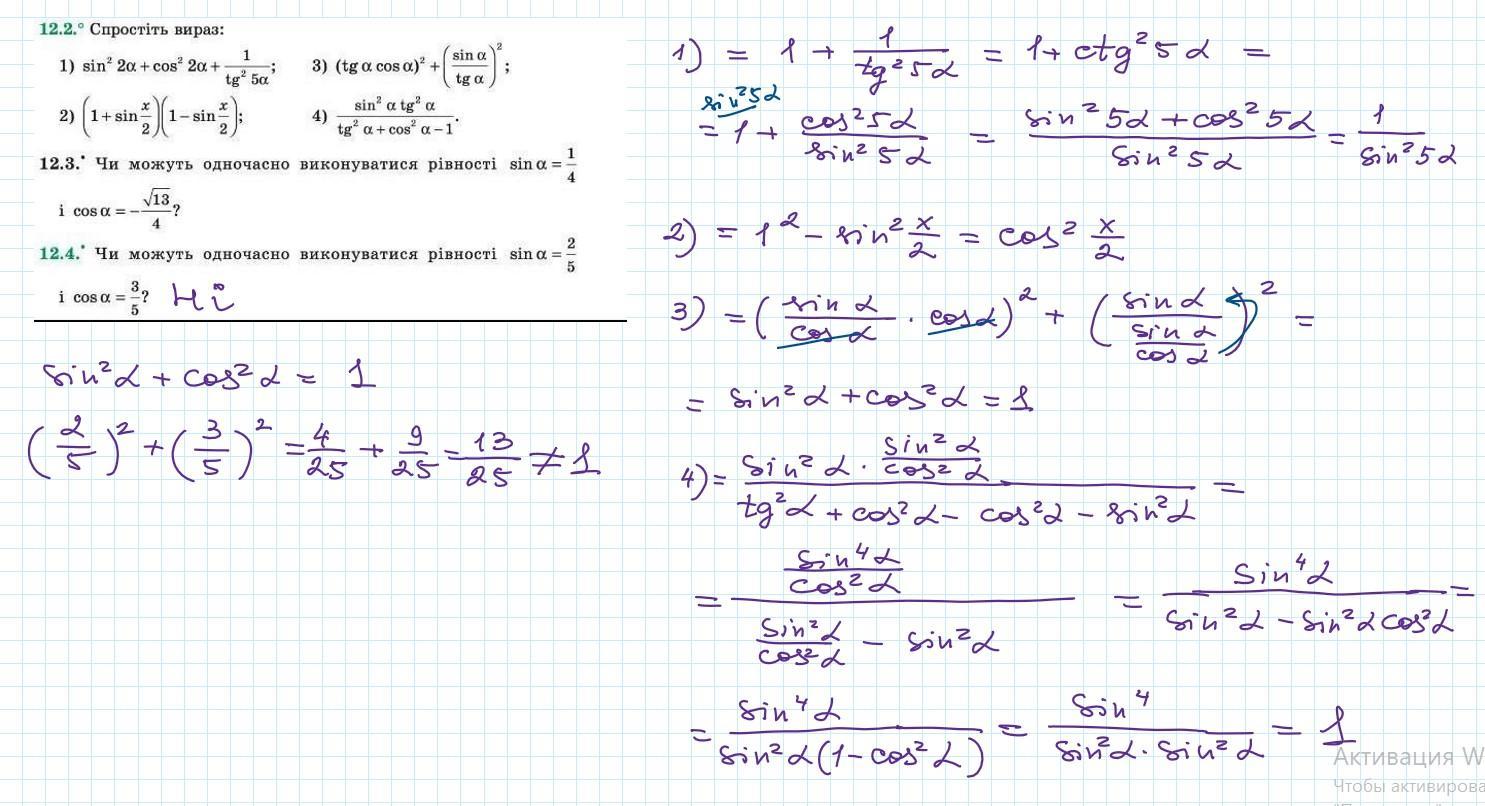 12.2.° Спростіть вираз:
1) sin² 2α + cos² 2α + 1/tg² 5α; 3) (tg α cos α)² + (sin α/tg α)²;
2) (1 + sin x/2)(1 − sin x/2); 4) sin² α tg² α/(tg² α + cos² α − 1).
12.3.• Чи можуть одночасно виконуватися рівності sin α = 1/4
і cos α = −√13/4?
12.4.• Чи можуть одночасно виконуватися рівності sin α = 2/5
і cos α = 3/5? Ні
sin²α + cos²α = 1
(2/5)² + (3/5)² = 4/25 + 9/25 = 13/25 ≠ 1
1) = 1 + 1/tg²5α = 1 + ctg²5α =
sin²5α
= 1 + cos²5α/sin²5α = (sin²5α + cos²5α)/sin²5α = 1/sin²5α
2) = 1² − sin² x/2 = cos² x/2
3) = (sin α/cos α · cos α)² + (sin α/(sin α/cos α))² =
= sin²α + cos²α = 1
4) = (sin²α · sin²α/cos²α)/(tg²α + cos²α − cos²α − sin²α) =
= (sin⁴α/cos²α)/(sin²α/cos²α − sin²α) = sin⁴α/(sin²α − sin²α cos²α) =
= sin⁴α/(sin²α(1 − cos²α)) = sin⁴/(sin²α · sin²α) = 1
Активация W
Чтобы активирова